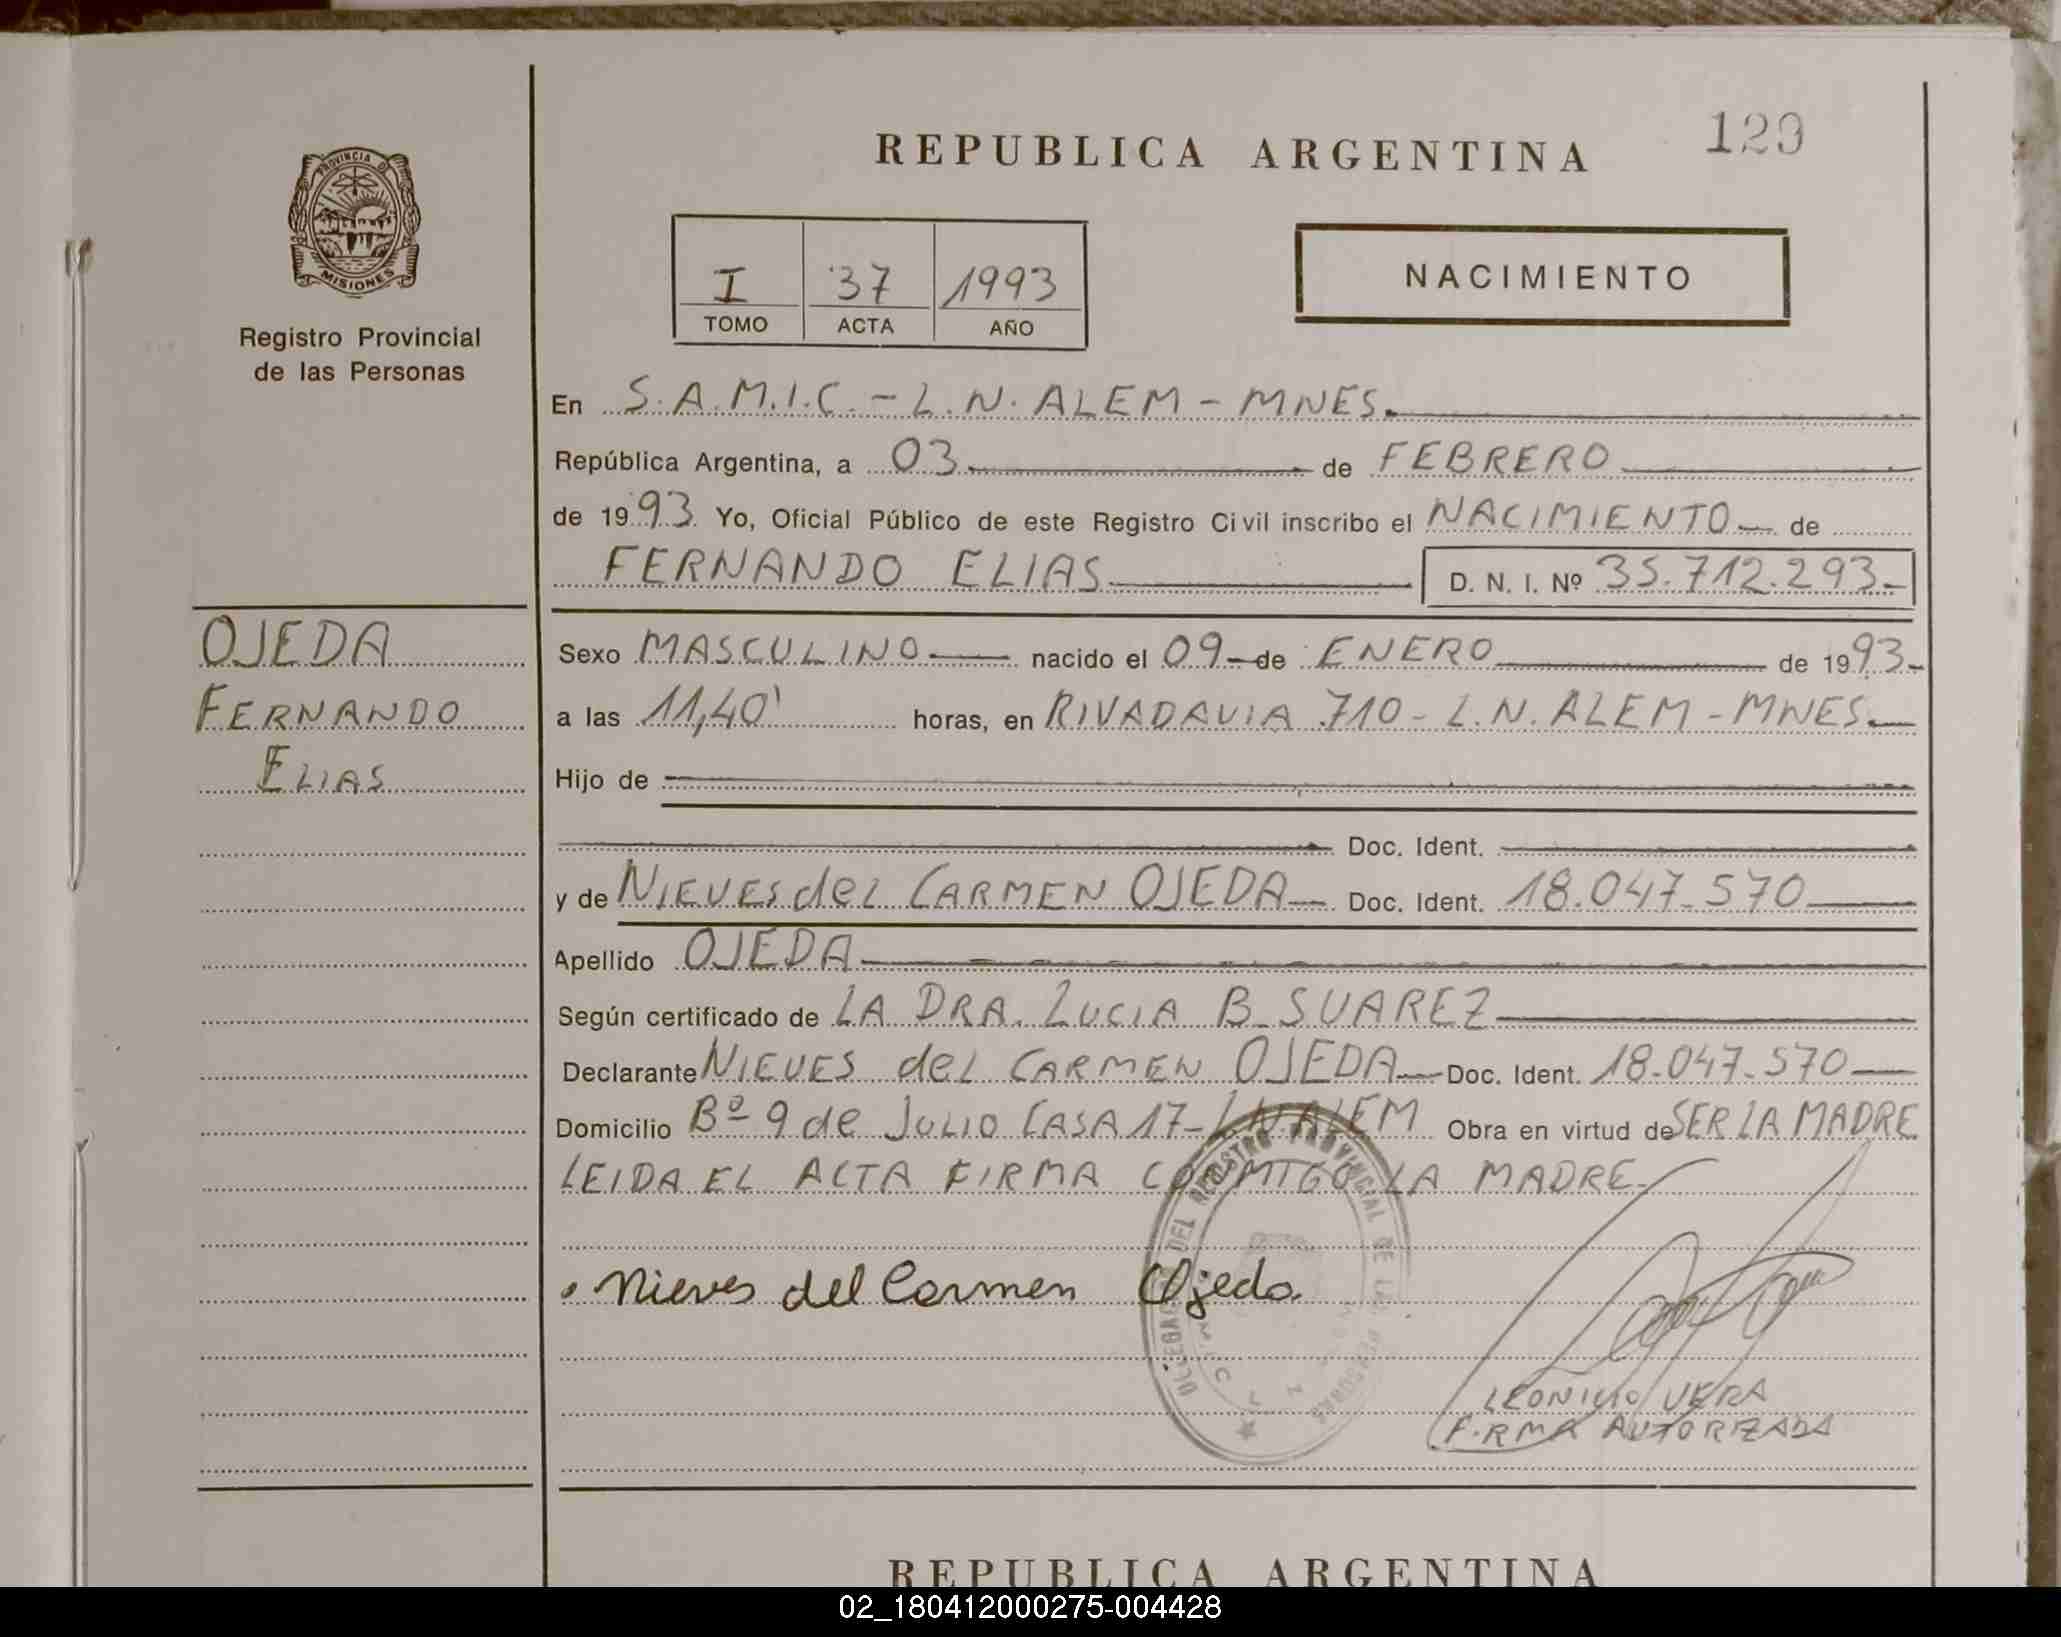 129
REPUBLICA ARGENTINA
PROVINCIA DE MISIONES
Registro Provincial
de las Personas
I 37 1993
TOMO ACTA AÑO
NACIMIENTO
En S.A.M.I.C. - L.N. ALEM - MNES.
República Argentina, a 03 de FEBRERO
de 1993 Yo, Oficial Público de este Registro Civil inscribo el NACIMIENTO de
FERNANDO ELIAS D. N. I. Nº 35.712.293
OJEDA
FERNANDO
ELIAS
Sexo MASCULINO nacido el 09 de ENERO de 1993
a las 11,40' horas, en RIVADAVIA 710 - L.N. ALEM - MNES.
Hijo de
Doc. Ident.
y de NIEVES del CARMEN OJEDA Doc. Ident. 18.047.570
Apellido OJEDA
Según certificado de LA DRA. LUCIA B. SUAREZ
Declarante NIEVES del CARMEN OJEDA Doc. Ident. 18.047.570
Domicilio Bº 9 de JULIO CASA 17 - L.N. ALEM Obra en virtud de SER LA MADRE
LEIDA EL ACTA FIRMA CONMIGO LA MADRE.
Nieves del Carmen Ojeda
DEL REGISTRO PROVINCIAL DE LAS PERSONAS
LEONICIO VERA
FIRMA AUTORIZADA
REPUBLICA ARGENTINA
02_180412000275-004428